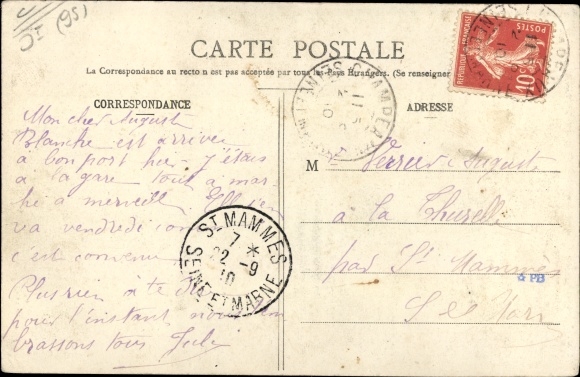 Dt (95)
CARTE POSTALE
La Correspondance au recto n est pas acceptée par tous les Pays Etrangers. (Se renseigner
CORRESPONDANCE
ADRESSE
Mon cher Auguste
Blanche est arrivée
a bon port hier j'étais
a la gare tout a mar-
ché a merveille Elle
va vendredi
c'est convenu
Plus rien a te dire
pour l'instant nous
brassons tous Jules
M Verrier Auguste
a la Thurelle
par St Mammès
S et Marn
ST MAMMES
7 *
22 -9
10
SEINE ET MARNE
REPUBLIQUE FRANÇAISE
POSTES
10c
PB